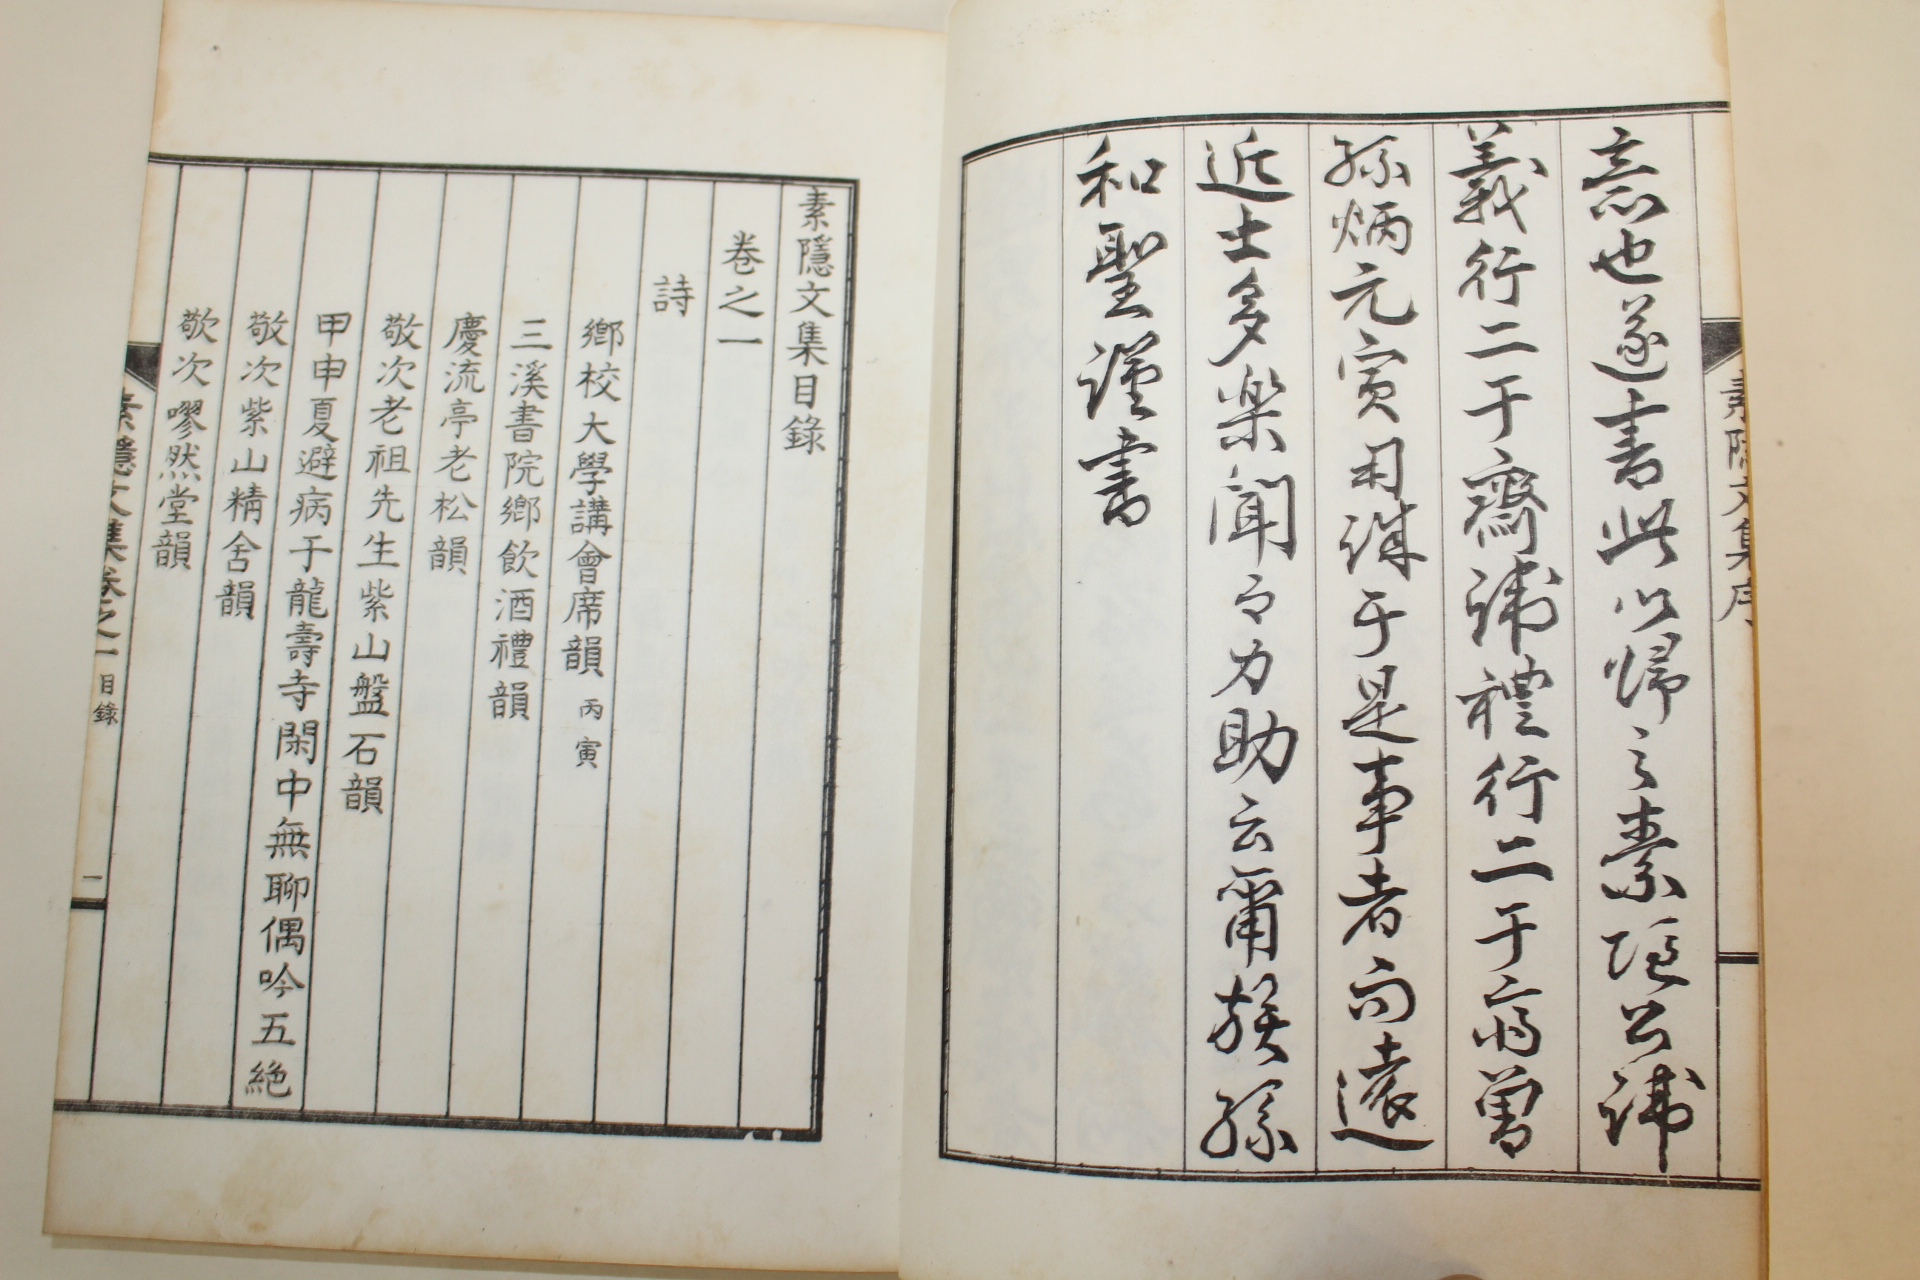 素隱文集序
意也遂書此以歸之素隱公諱
義行二于齋諱禮行二于齋曾
孫炳元寅用洙于是事者而遠
近士多樂聞而力助云爾族孫
和聖謹書
素隱文集目錄
卷之一
詩
鄕校大學講會席韻 丙寅
三溪書院鄕飮酒禮韻
慶流亭老松韻
敬次老祖先生紫山盤石韻
甲申夏避病于龍壽寺閑中無聊偶吟五絶
敬次紫山精舍韻
敬次嘐然堂韻
素隱文集卷之一 目錄 一